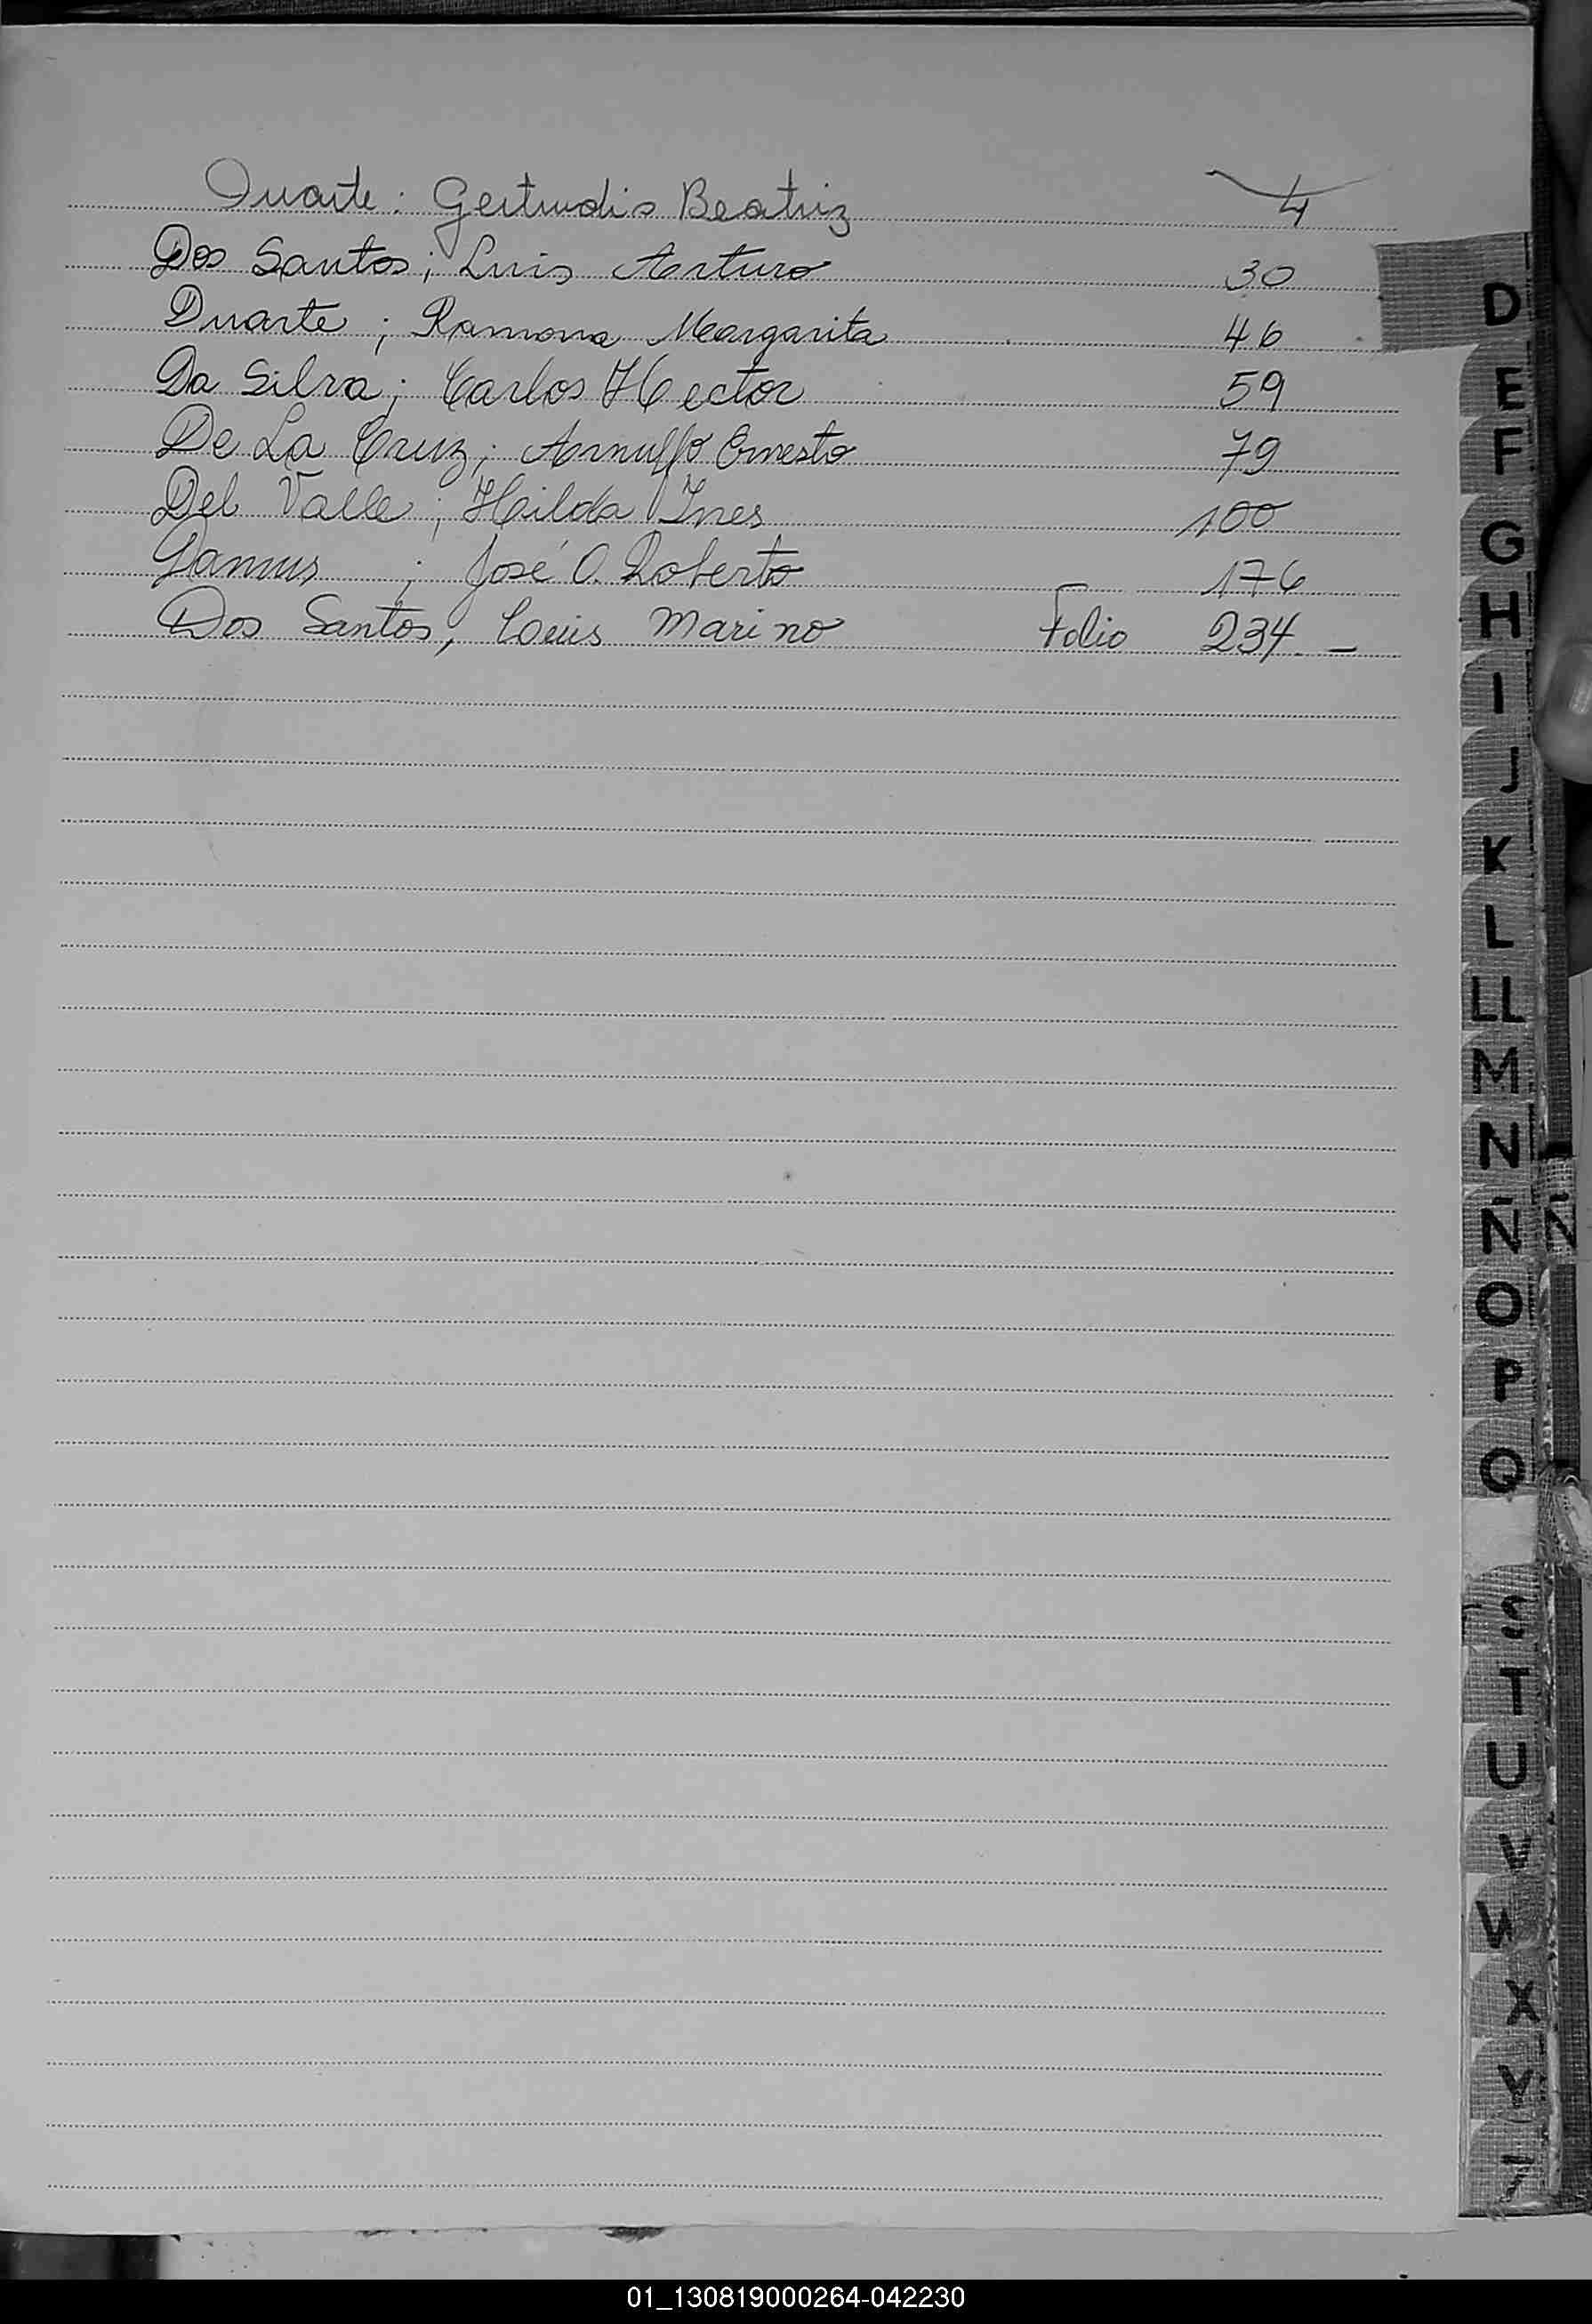 Duarte: Gertrudis Beatriz 4
Dos Santos; Luis Arturo 30
Duarte; Ramona Margarita 46
Da Silva; Carlos Hector 59
De La Cruz; Arnulfo Ernesto 79
Del Valle; Hilda Ines 100
Damus; José O. Roberto 176
Dos Santos, Louis Marino Folio 234.-
D
E
F
G
H
I
J
K
L
LL
M
N
Ñ
O
P
Q
S
T
U
V
W
X
Y
01_130819000264-042230